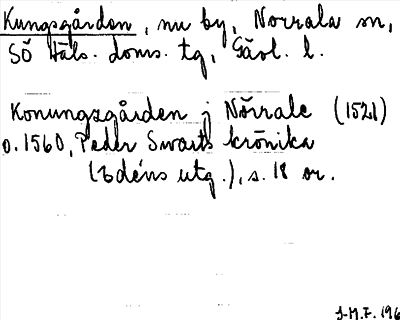 Kungsgården, nu by, Norrala sn,
SÖ Häls. doms. tg, Gävl. l.
Konungsgården j Nørrale (1521)
o. 1560, Peder Swarts krönika
(Edéns utg.), s. 18 or.
J-M.F. 196